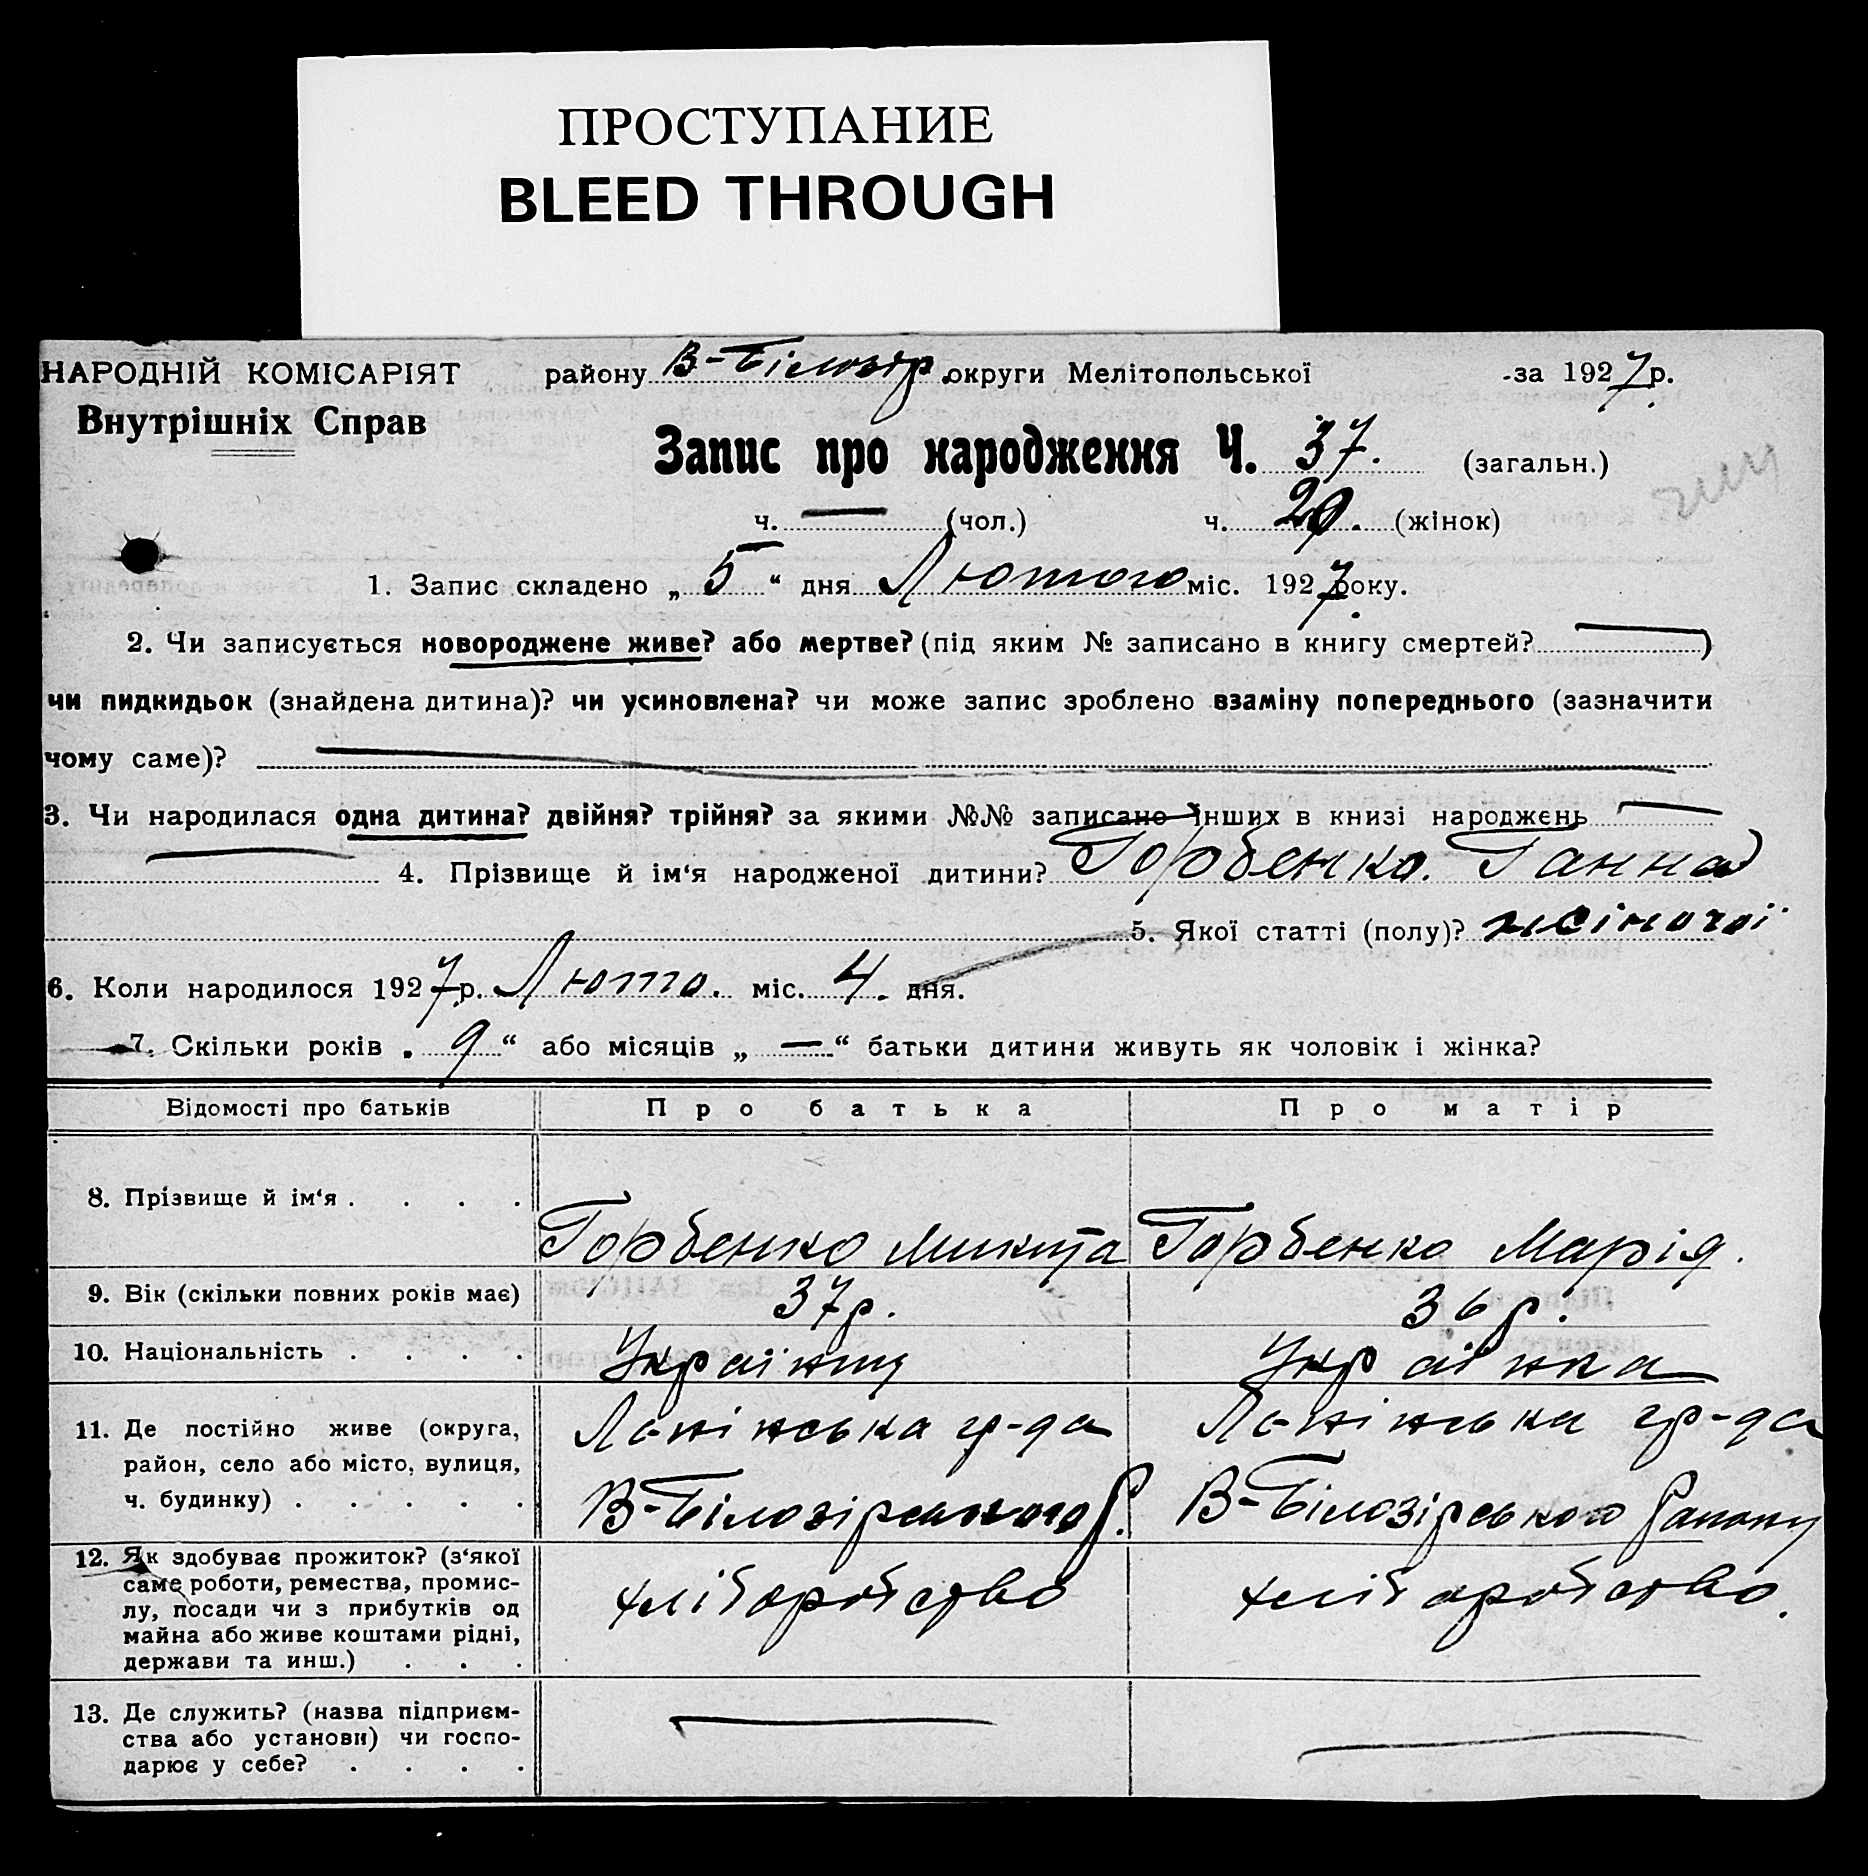 ПРОСТУПАНИЕ
BLEED THROUGH
НАРОДНІЙ КОМІСАРІЯТ району В-Білозір. округи Мелітопольської -за 1927 р.
Внутрішніх Справ
Запис про народження Ч. 37. (загальн.)
ч. — (чол.) ч. 20. (жінок)
1. Запис складено „ 5 “ дня Лютого міс. 1927 року.
2. Чи записується новороджене живе? або мертве? (під яким № записано в книгу смертей? — )
чи пидкидьок (знайдена дитина)? чи усиновлена? чи може запис зроблено взаміну попереднього (зазначити
чому саме)? —
3. Чи народилася одна дитина? двійня? трійня? за якими №№ записано інших в книзі народжень —
— 4. Прізвище й ім‘я народженої дитини? Горбенко. Ганна
5. Якої статті (полу)? жіночої
6. Коли народилося 1927 р. Люто. міс. 4. дня.
7. Скільки років „ 9 “ або місяців „ — “ батьки дитини живуть як чоловік і жінка?
Відомості про батьків Про батька Про матір
8. Прізвище й ім‘я . . . . Горбенко Микита Горбенко Марія.
9. Вік (скільки повних років має) 37 р. 36 р.
10. Національність . . . . Українці Українка
11. Де постійно живе (округа, район, село або місто, вулиця, ч. будинку) . . . . .
гр-да
В-Білозірського Р.
гр-да
В-Білозірського Району
12. Як здобуває прожиток? (з‘якої
саме роботи, ремества, промис-
лу, посади чи з прибутків од
майна або живе коштами рідні,
держави та инш.) . . .
хліборобство хліборобство.
13. Де служить? (назва підприєм-
ства або установи) чи госпо-
дарює у себе? . . . .
— —